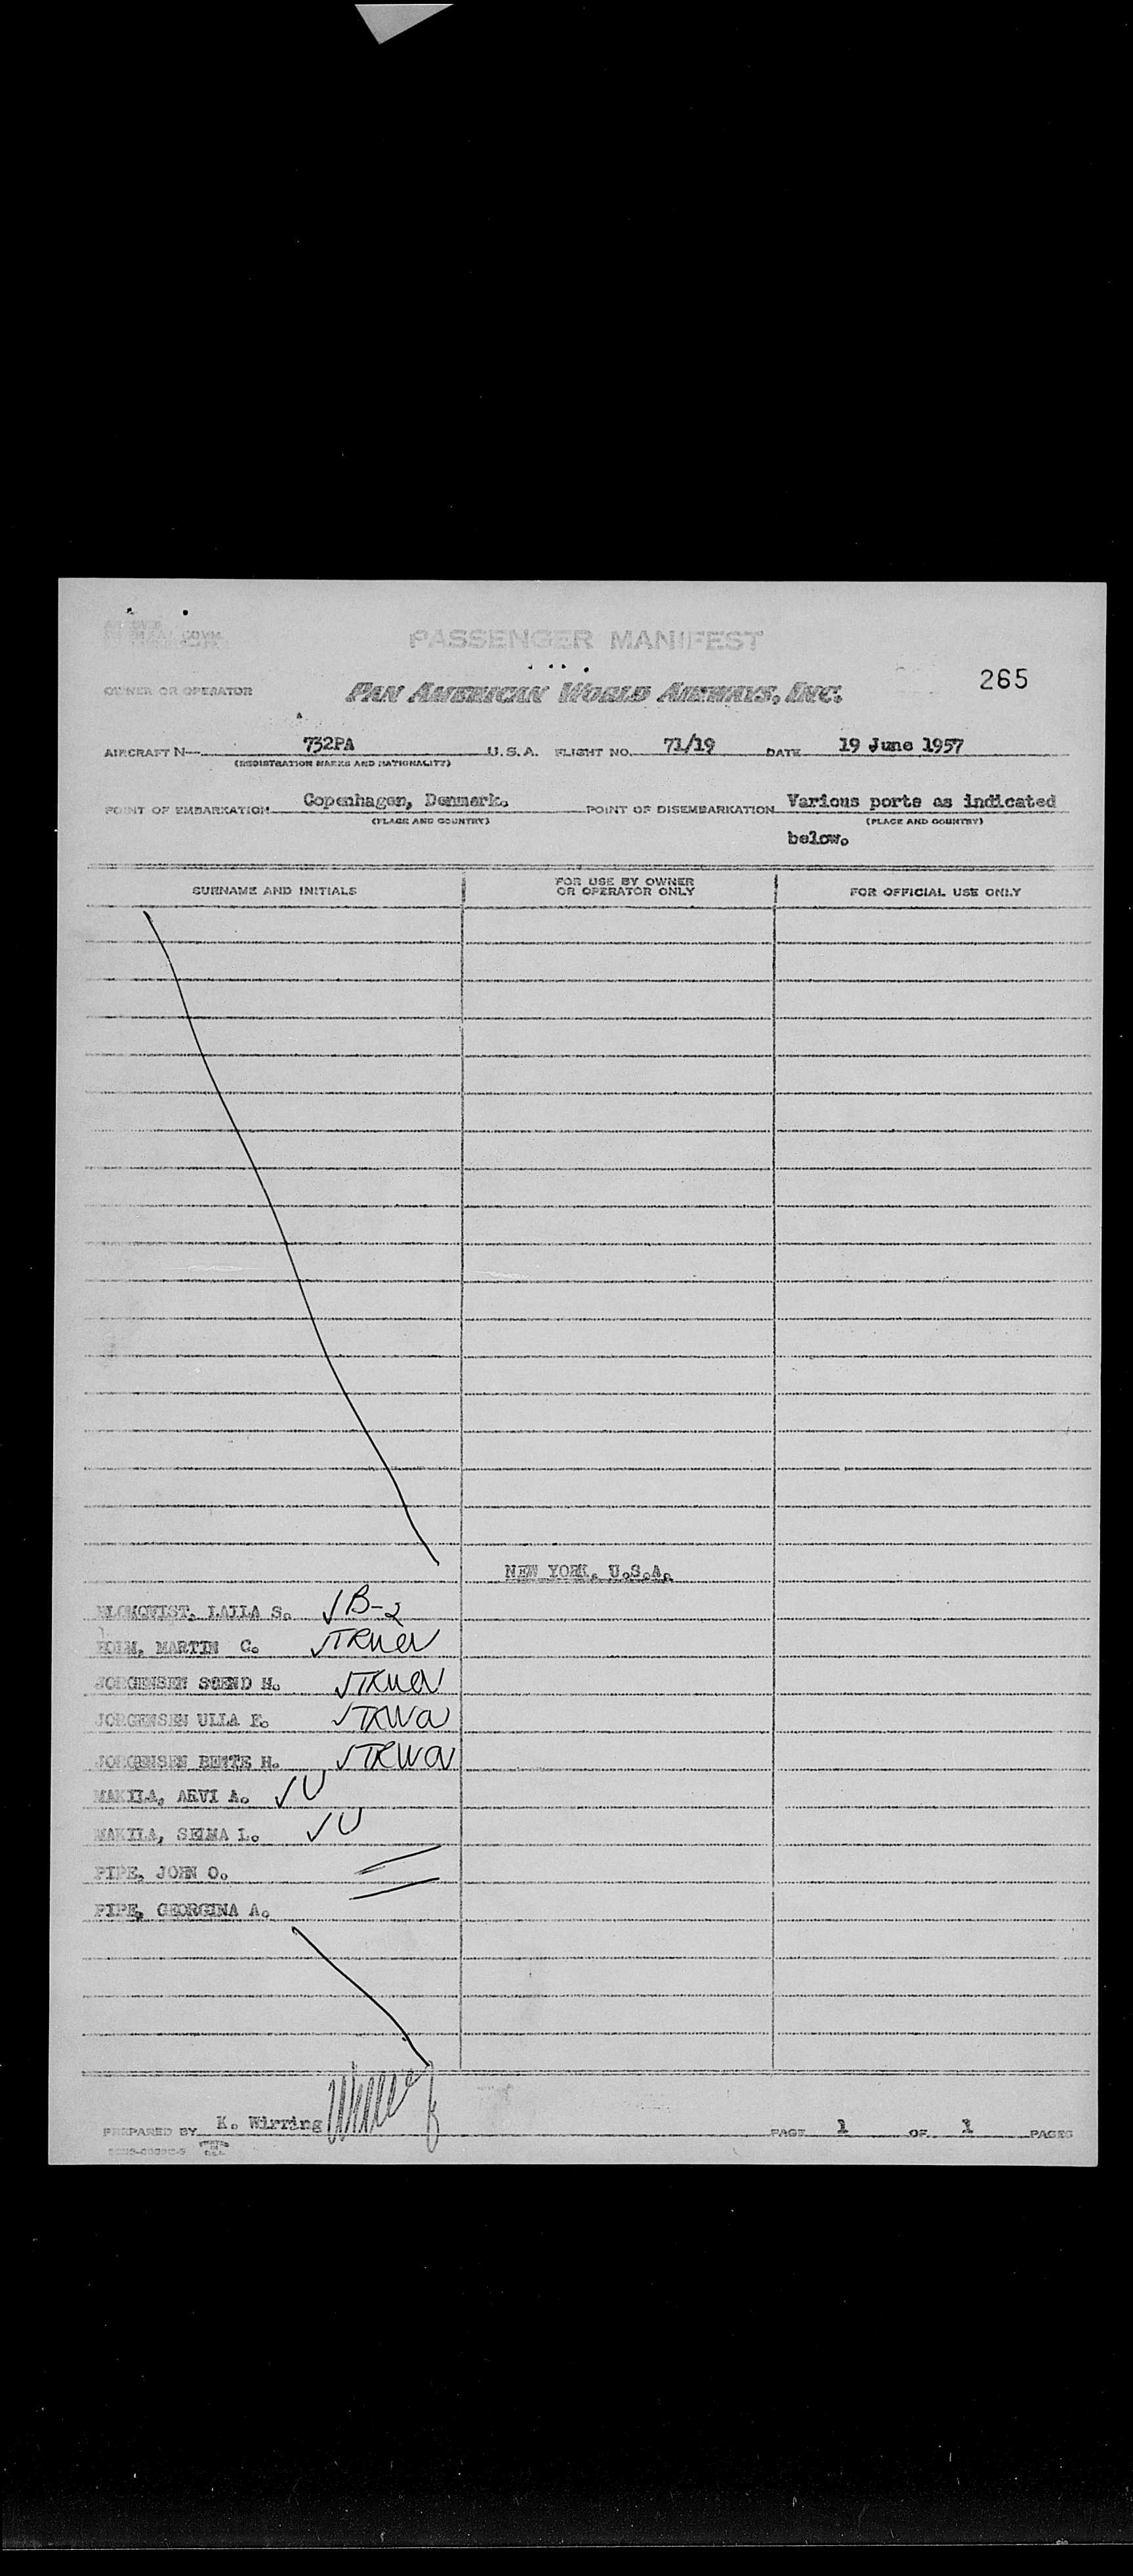 PASSENGER MANIFEST
265
OWNER OR OPERATOR PAN AMERICAN WORLD AIRWAYS, INC.
AIRCRAFT N— 732PA U.S.A. FLIGHT NO. 71/19 DATE 19 June 1957
(REGISTRATION MARKS AND NATIONALITY)
POINT OF EMBARKATION Copenhagen, Denmark. POINT OF DISEMBARKATION Various ports as indicated
(PLACE AND COUNTRY) (PLACE AND COUNTRY)
below.
SURNAME AND INITIALS FOR USE BY OWNER OR OPERATOR ONLY FOR OFFICIAL USE ONLY
NEW YORK, U.S.A.
BLOMQVIST, LAILA S. √ B-2
HOLM, MARTIN C. √
JORGENSEN SVEND H. √
JORGENSEN ULLA F. √
JORGENSEN BENTE H. √
MAKILA, ARVI A. √ U
MAKILA, SELMA L. √ U
PIPE, JOHN O.
PIPE, GEORGINA A.
PREPARED BY K. Wirring PAGE 1 OF 1 PAGES